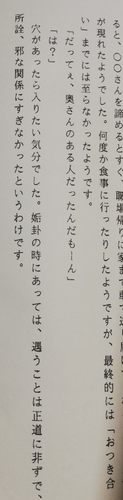 ると、○○さんを諦めるとすぐ、職場帰りに家まで車で送り届け
が現れたようでした。何度か食事に行ったりしたようですが、最終的には「おつき合
い」までには至らなかったようです。
「だってぇ、奥さんのある人だったんだもーん」
「は?」
穴があったら入りたい気分でした。姤卦の時にあっては、遇うことは正道に非ずで、
所詮、邪な関係にすぎなかったというわけです。